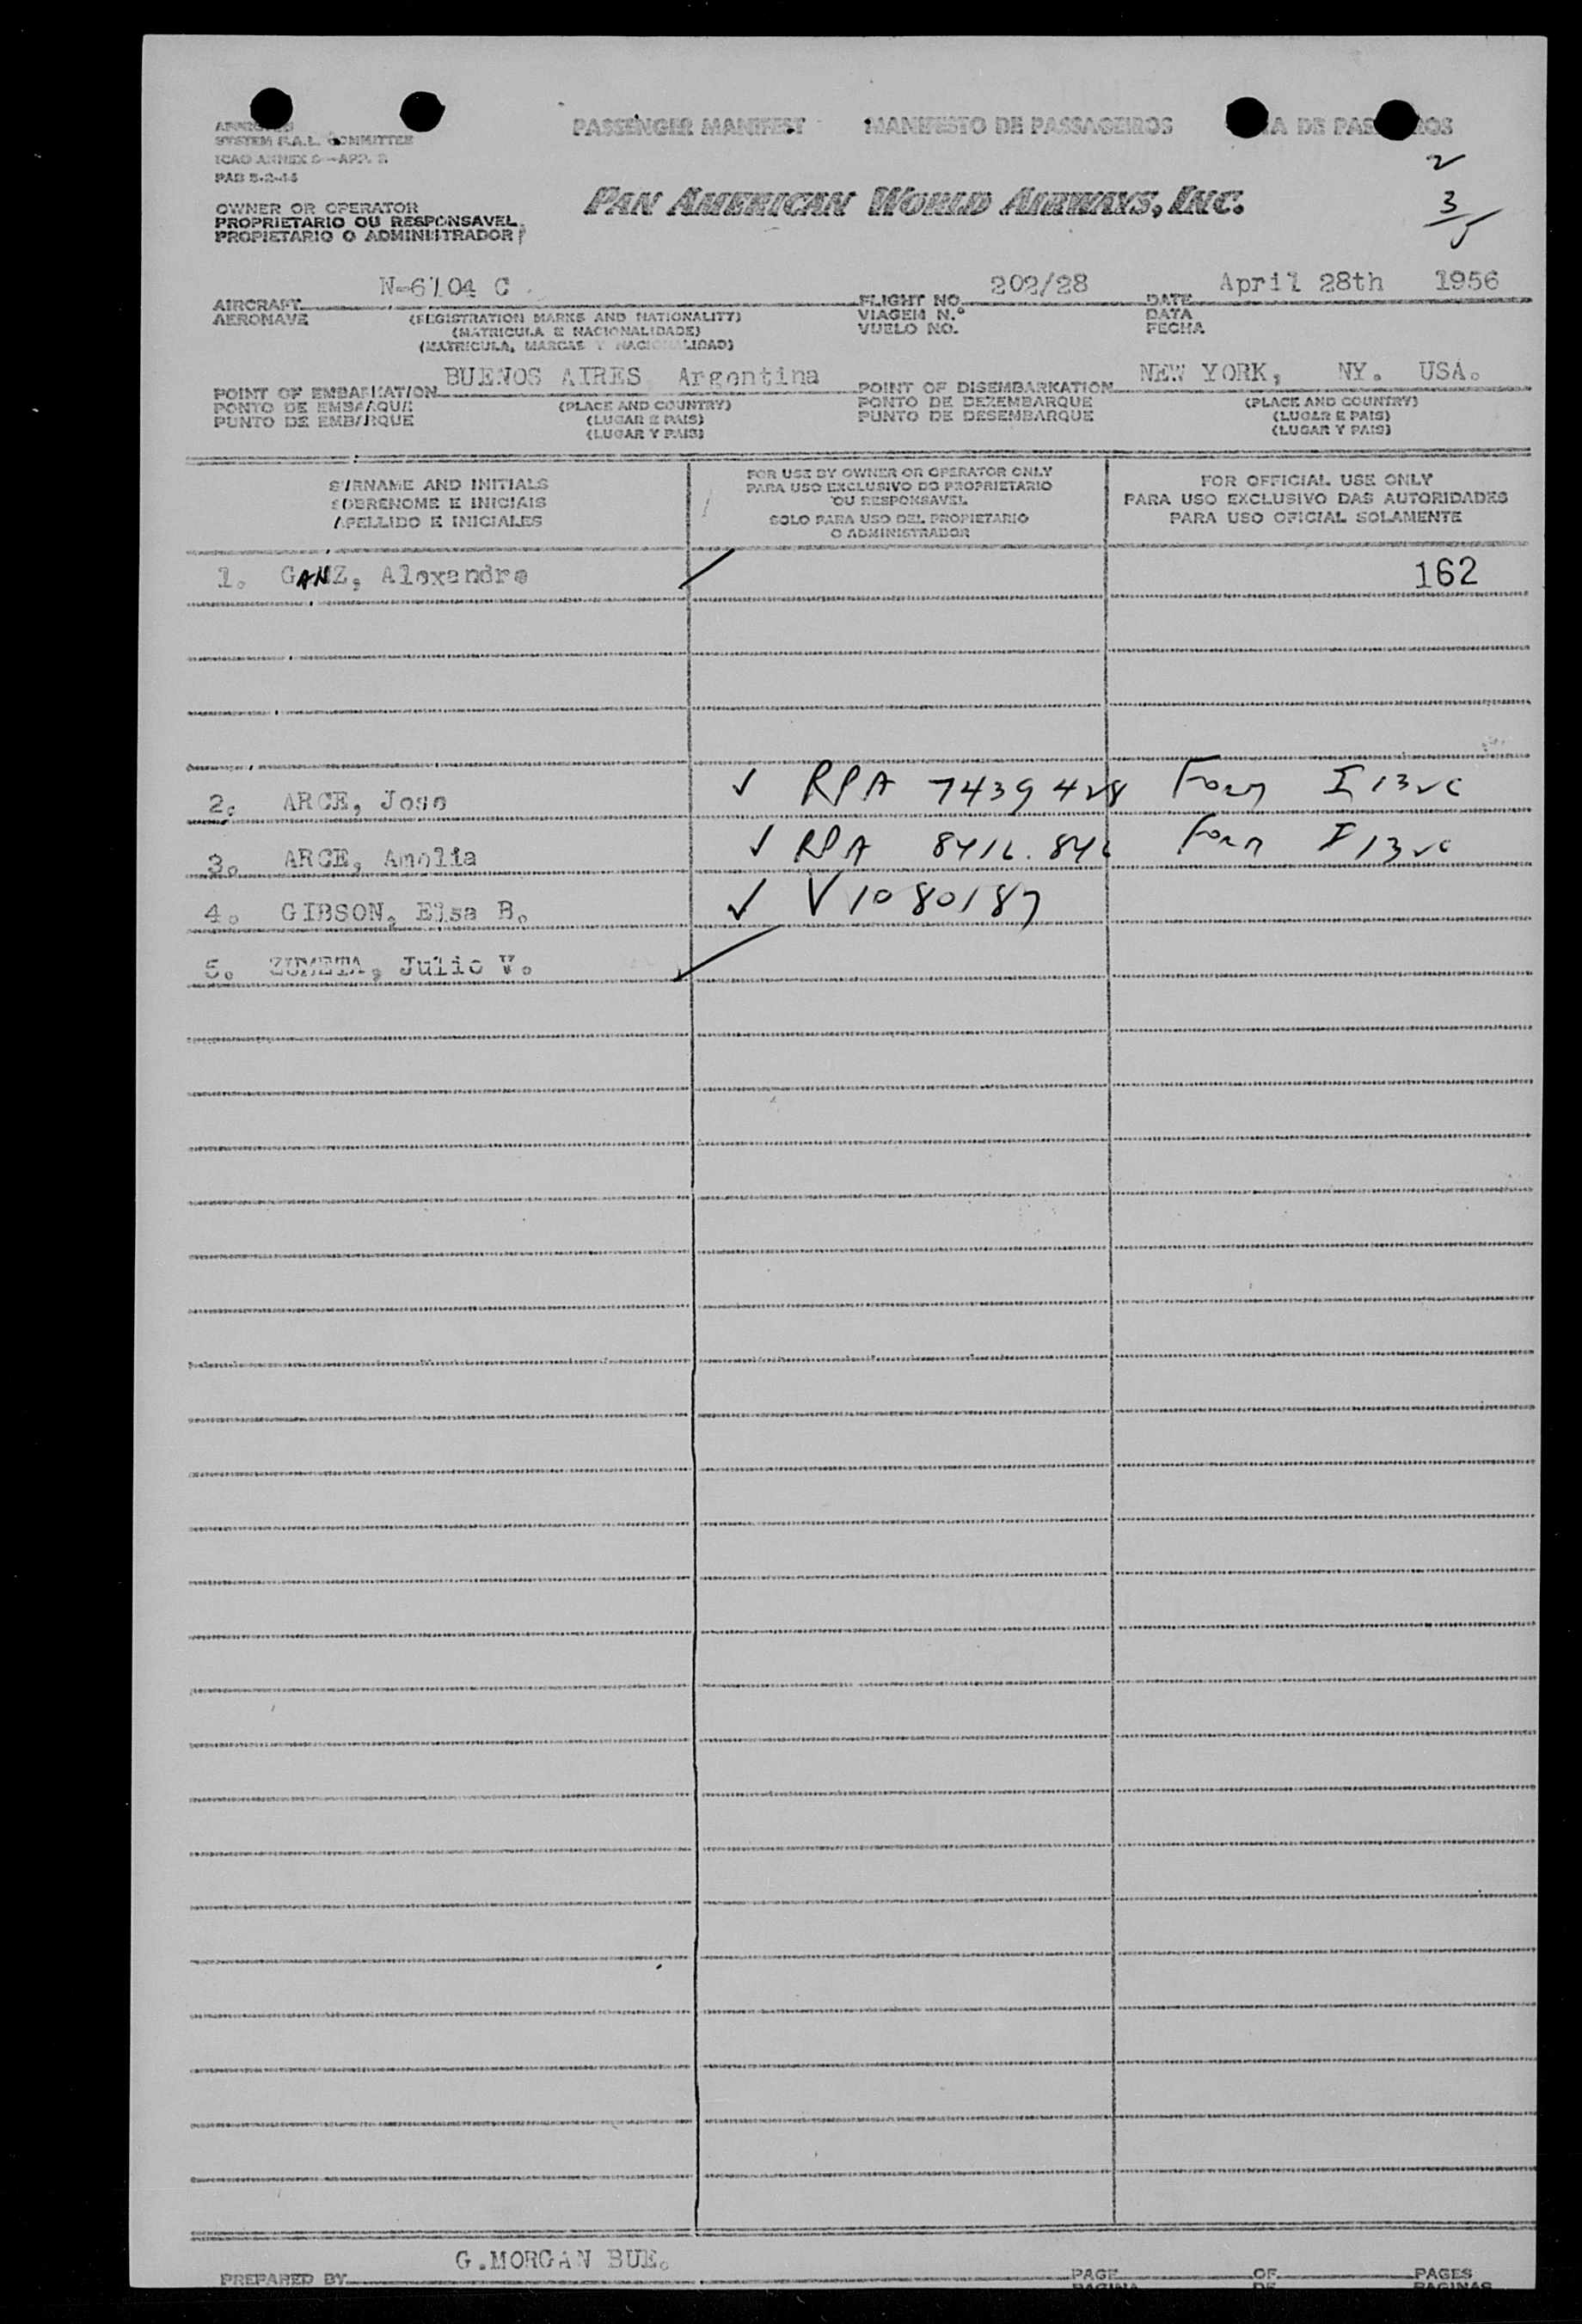 APPROVED
SYSTEM F.A.L. COMMITTEE
ICAO ANNEX 9—APP.
PASSENGER MANIFEST MANIFESTO DE PASSAGEIROS DE
2
3
5
PAN AMERICAN WORLD AIRWAYS, INC.
OWNER OR OPERATOR
PROPRIETARIO OU RESPONSAVEL
PROPIETARIO O ADMINISTRADOR
AIRCRAFT N-6704 C FLIGHT NO. 202/28 DATE April 28th 1956
AERONAVE (REGISTRATION MARKS AND NATIONALITY) VIAGEM N.º DATA
(MATRICULA E NACIONALIDADE) VUELO NO. FECHA
(MATRICULA, MARCAS Y NACIONALIDAD)
POINT OF EMBARKATION BUENOS AIRES Argentina POINT OF DISEMBARKATION NEW YORK, NY. USA.
PONTO DE EMBARQUE (PLACE AND COUNTRY) PONTO DE DEZEMBARQUE (PLACE AND COUNTRY)
PUNTO DE EMBARQUE (LUGAR E PAIS) PUNTO DE DESEMBARQUE (LUGAR E PAIS)
(LUGAR Y PAIS) (LUGAR Y PAIS)
SURNAME AND INITIALS
SOBRENOME E INICIAIS
APELLIDO E INICIALES
FOR USE BY OWNER OR OPERATOR ONLY
PARA USO EXCLUSIVO DO PROPRIETARIO
OU RESPONSAVEL
SOLO PARA USO DEL PROPIETARIO
O ADMINISTRADOR
FOR OFFICIAL USE ONLY
PARA USO EXCLUSIVO DAS AUTORIDADES
PARA USO OFICIAL SOLAMENTE
1. GANZ, Alexandre 162
2. ARCE, Jose ✓ RPA 7439428 Form I 132c
3. ARCE, Amelia ✓ RPA 8416.846 Form I 132c
4. GIBSON, Elsa B. ✓ V1080187
5. ZUMETA, Julio V.
G.MORGAN BUE.
PREPARED BY PAGE OF PAGES
PAGINA DE PAGINAS